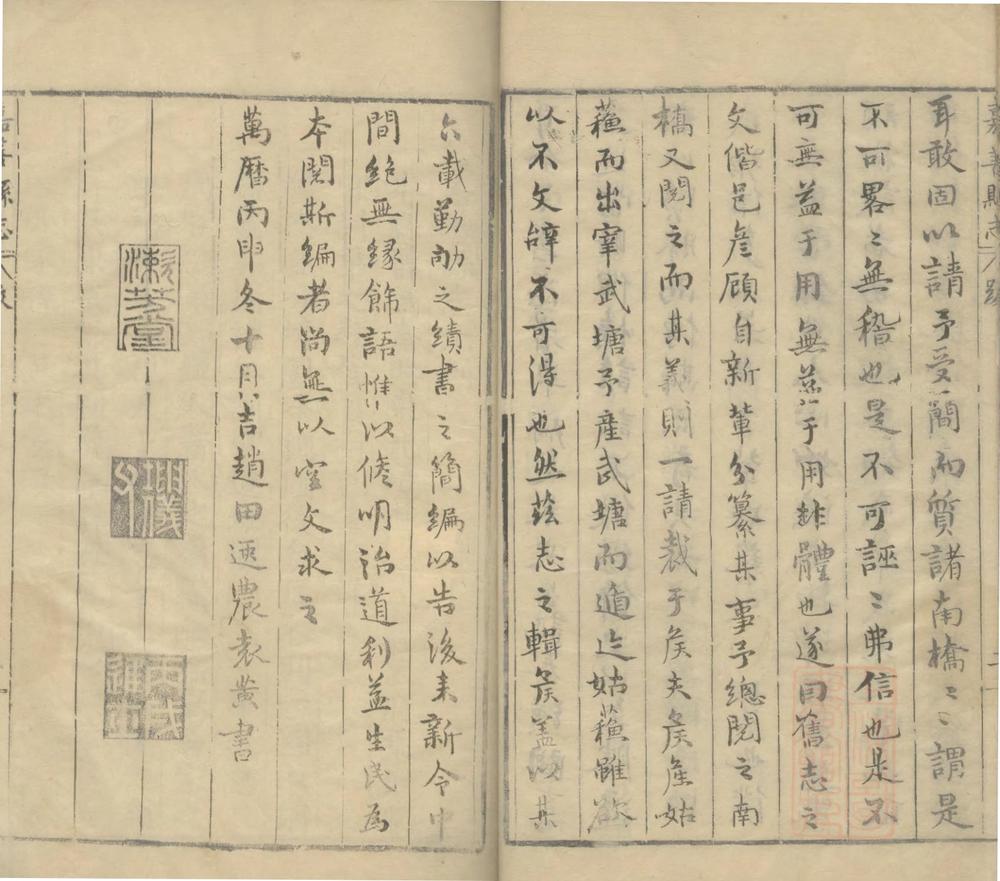 耳敢固以請予受簡而質諸南橋〻謂是
不可畧〻無稽也是不可誣〻弗信也是不
可無益于用無益于用非體也遂因舊志之
文偕邑彥顧自新輩分纂其事予總閱之南
橋又閱之而其義則一請裁于矦夫矦產姑
蘓而出宰武塘予產武塘而遁迹姑蘓雖欲
以不文辭不可得也然茲志之輯矦盖以其
六載勤劬之績書之簡編以告後来新令中
間絶無縁餙語惟以修明治道利益生民為
本閱斯編者尚無以空文求之
萬曆丙申冬十月吉趙田逸農袁黃書
漱芳堂
坤儀父